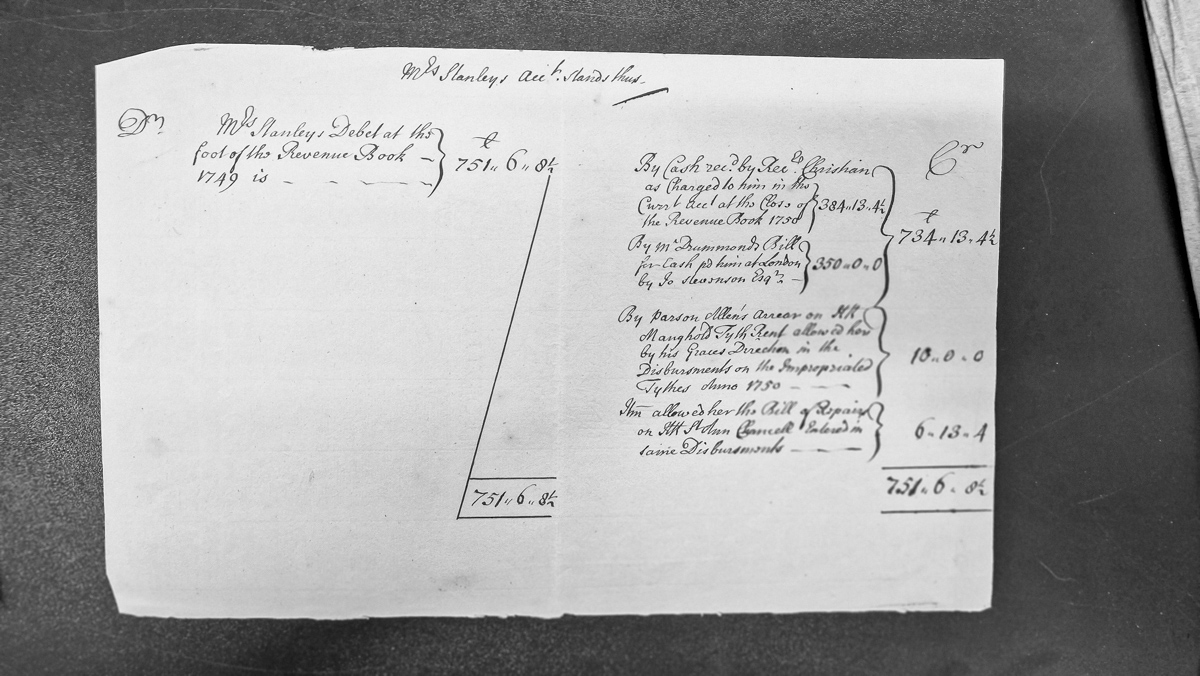 Mrs Stanleys Acct. stands thus
Dr
Mrs Stanleys Debet at the
foot of the Revenue Book
1749 is
£
751 " 6 " 8½
751 " 6 " 8½
Cr
By Cash rec'd by Rec'd. Christian
as Charged to him in the
Currt Acct at the Close of
the Revenue Book 1750
384 " 13 " 4½
By Mr Drummonds Bill
for Cash pd him at London
by Jo Stevenson Esqr
350 " 0 " 0
£
734 " 13 " 4½
By Parson Allen's Arrear on KK
Maughold Tyth Rent allowed her
by his Graces Direction in the
Disbursments on the Impropriated
Tythes Anno 1750
10 " 0 " 0
Itm allowed her the Bill of Repairs
on KK St Ann Chancell Entered in
same Disbursments
6 " 13 " 4
751 " 6 " 8½